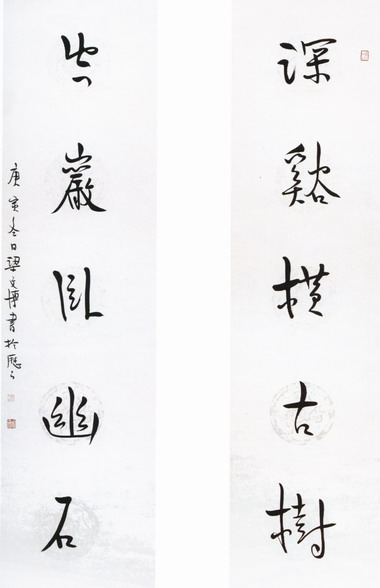 深谿橫古樹
空巖臥幽石
庚寅冬日梁文博書於歷下